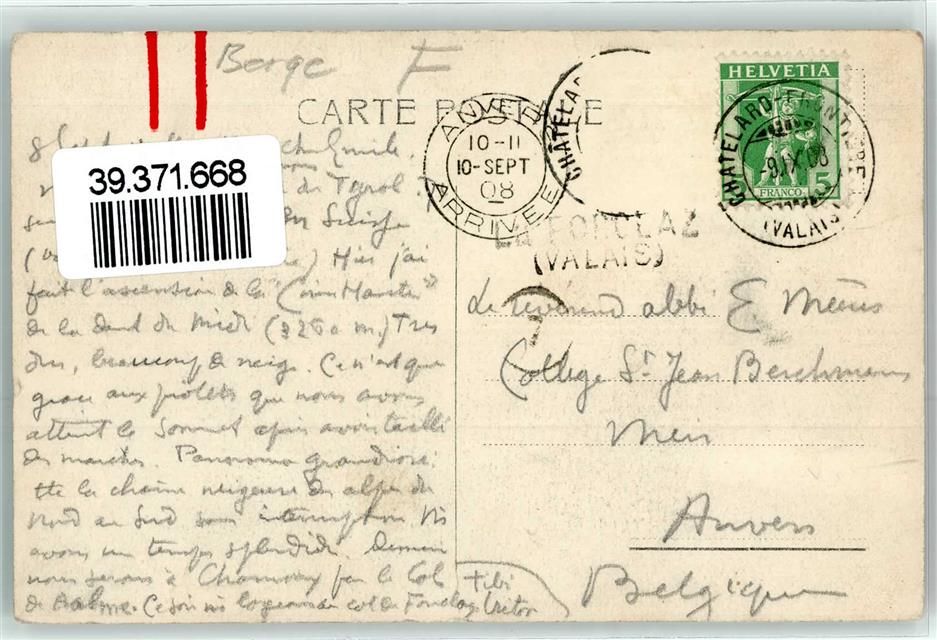 Berge F
CARTE POSTALE
HELVETIA
FRANCO 5
CHATELARD-FRONTIÈRE
-9.IX.08
(VALAIS)
CHATELARD
ANVERS
10-11
10-SEPT
08
ARRIVEE
LA FORCLAZ
(VALAIS)
39.371.668
8 Sept cher Emile,
du Tyrol
en Suisse
Hier j'ai
fait l'ascension de la
de la dent du Midi (3260 m.) Tres
dur, beaucoup de neige. Ce n'est que
grace aux piolets que nous avons
atteint le sommet après avoir taillé
des marches. Panorama grandiose:
tte la chaine neigeuse des alpes du
Nord au Sud sans interruption. Ns
avons un temps splendide. Demain
nous serons à Chamonix par le Col
de Balme. Ce soir ns logeons au col de Forclaz
tibi
Victor
Le révérend abbé E. Meeùs
Collège St Jean Berchmans
Meir
Anvers
Belgique